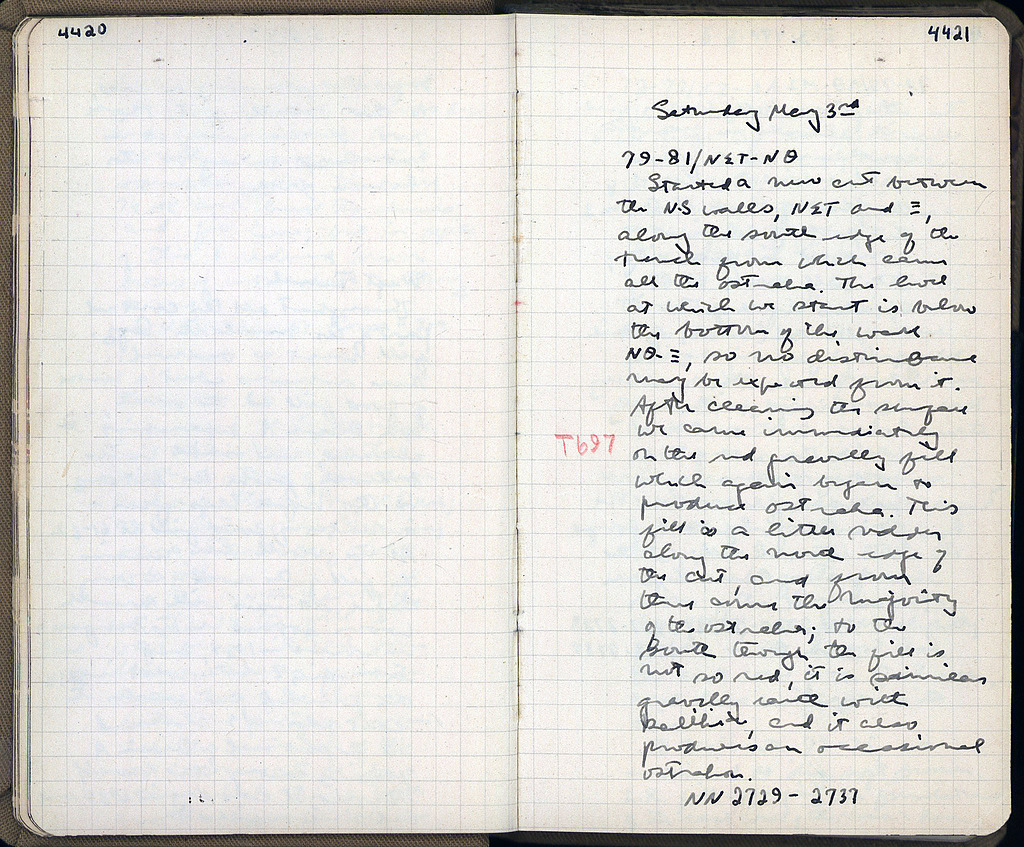 4420
4421
Saturday May 3rd
79-81/ΝΣΤ-ΝΘ
Started a new cut between
the N-S walls, ΝΣΤ and Ξ,
along the south edge of the
trench from which came
all the ostraka. The level
at which we start is below
the bottom of the wall
ΝΘ-Ξ, so no disturbance
may be expected from it.
After cleaning the surface
we came immediately
on the red gravelly fill
which again began to
produce ostraka. This
fill is a little redder
along the north edge of
the cut, and from
there comes the majority
of the ostraka; to the
South though the fill is
not so red, it is similar
gravelly with
, and it also
produces an occasional
ostrakon.
NN 2729 - 2737
T697